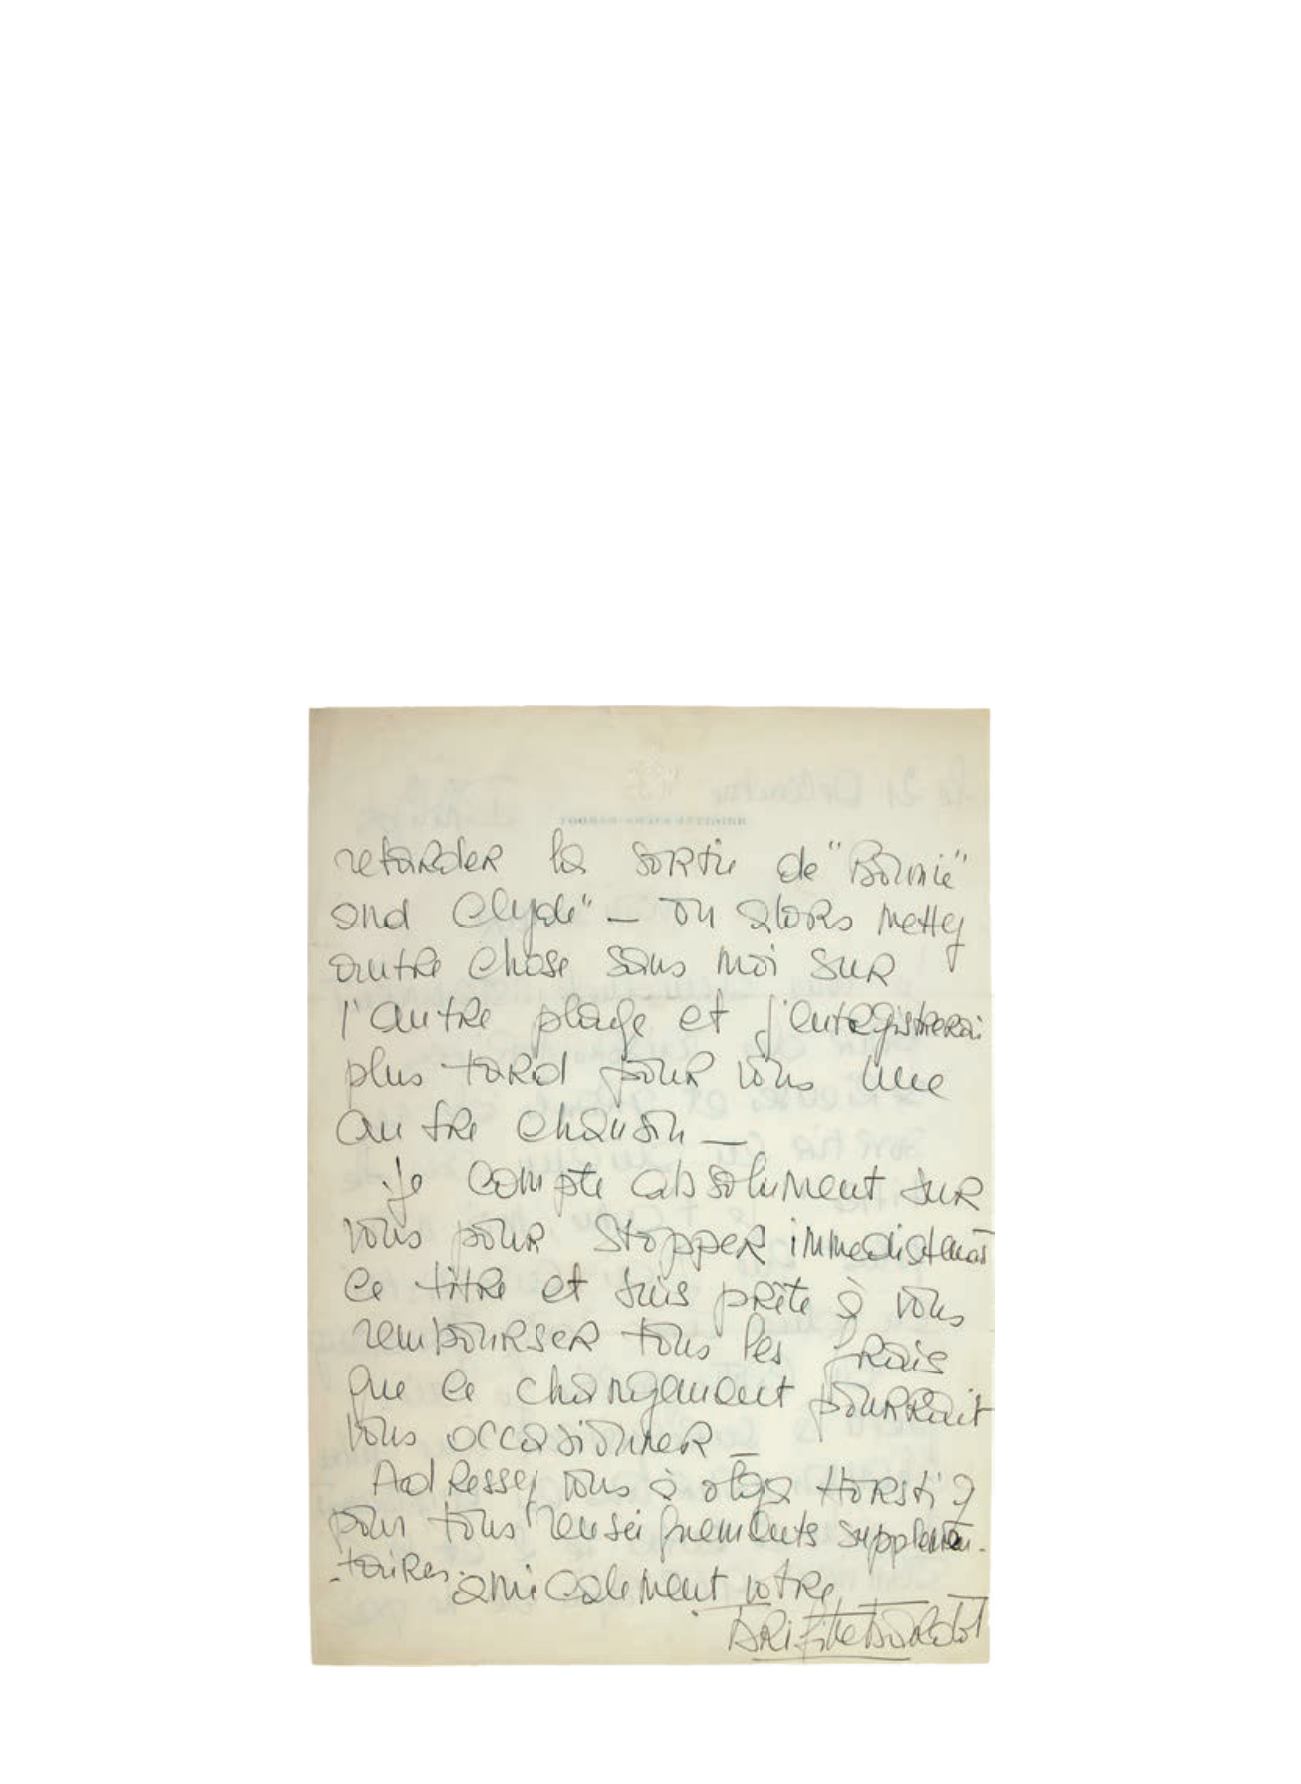 retarder la sortie de "Bonnie"
and Clyde" — ou alors mettez
autre chose sans moi sur
l'autre plage et j'enregistrerai
plus tard pour vous une
autre chanson —
je compte absolument sur
vous pour stopper immediatement
ce titre et suis prête à vous
rembourser tous les frais
que ce changement pourrait
vous occasionner —
Adressez vous à Olga Horstig
pour tous renseignements supplémen-
-taires. amicalement votre
Brigitte Bardot